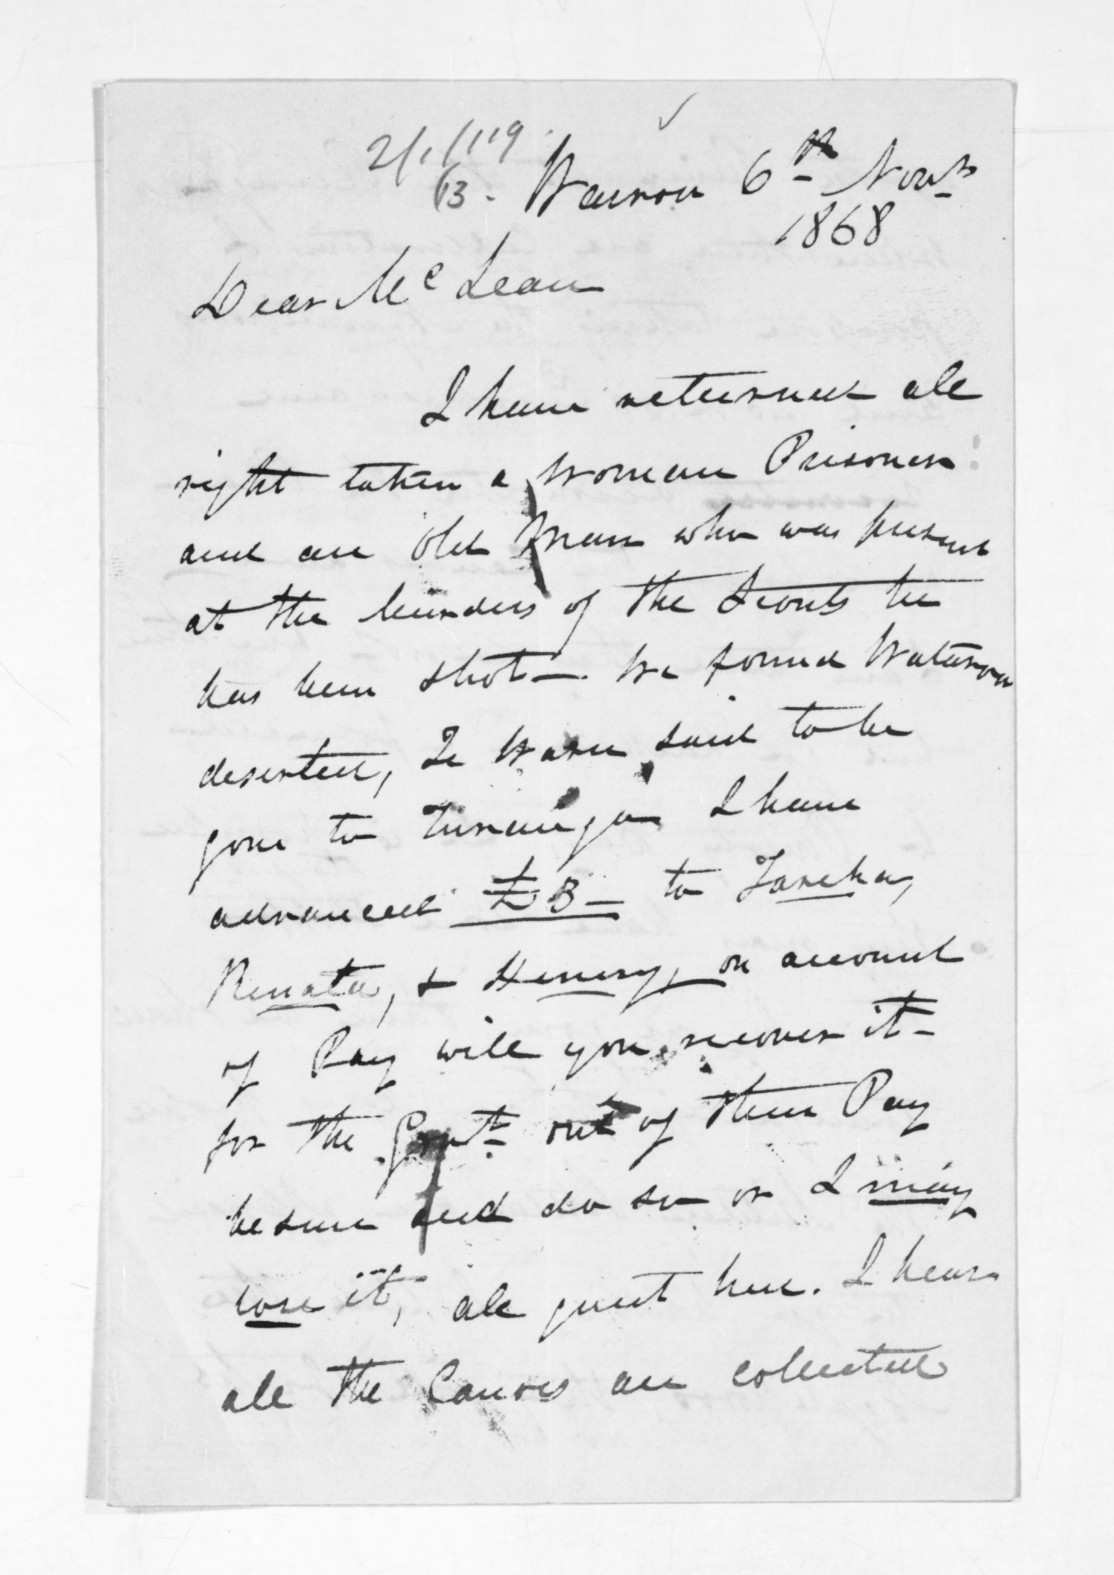 2/1/119
13. Wairoa 6th Novr
1868
Dear McLean
I have returned all
right taken a Woman Prisoner
and an Old Man who was present
at the murders of the Scouts he
has been shot - We found Wataroa
deserted, Te Waru said to be
gone to Turanga I have
advanced £3 - to Tareha,
Renata, & Henery, on account
of Pay will you recover it -
for the Govt out of their Pay
be sure and do so or I may
lose it, all quiet here. I hear
all the Canoes are collected